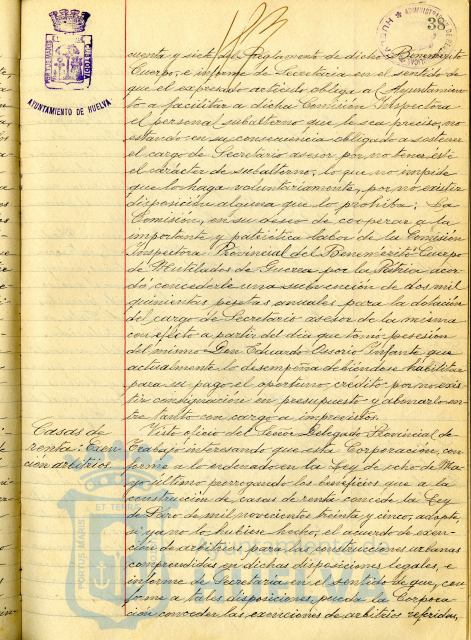 38
AYUNTAMIENTO DE HUELVA
cuenta y siete del Reglamento de dicho Benemérito
Cuerpo, e informe de Secretaria en el sentido de
que el expresado artículo obliga al Ayuntamien
to a facilitar a dicha Comisión Inspectora
el personal subalterno que le sea preciso, no
estando en su consecuencia obligado a sostener
el cargo de Secretario asesor por no tener éste
el carácter de subalterno, lo que no impide
que lo haga voluntariamente, por no existir
disposición alguna que lo prohiba; La
Comisión, en su deseo de cooperar a la
importante y patriótica labor de la Comisión
Inspectora Provincial del Benemérito Cuerpo
de Mutilados de Guerra por la Patria acor
dó concederle una subvención de dos mil
quinientas pesetas anuales para la dotación
del cargo de Secretario asesor de la misma
con efecto a partir del dia que tomó posesión
del mismo Don Eduardo Ossorio Infante que
actualmente lo desempeña debiéndose habilitar
para su pago el oportuno crédito por no exis
tir consignación en presupuesto y abonarlo en
tre tanto con cargo a imprevistos.
Casas de
renta: Exen
cion arbitrios.
Visto oficio del Señor Delegado Provincial de
Trabajo interesando que esta Corporación, con
forme a lo ordenado en la Ley de ocho de Ma
yo último prorrogando los beneficios que a la
construcción de casas de renta concede la Ley
de Paro de mil novecientos treinta y cinco, adopte,
si ya no lo hubiese hecho, el acuerdo de exen
ción de arbitrios para las construcciones urbanas
comprendidas en dichas disposiciones legales, e
informe de Secretaria en el sentido de que, con
forme a tales disposiciones, pueda la Corpora
ción conceder las exenciones de arbitrios referidas,
PORTUS MARIS
ET TERRAE